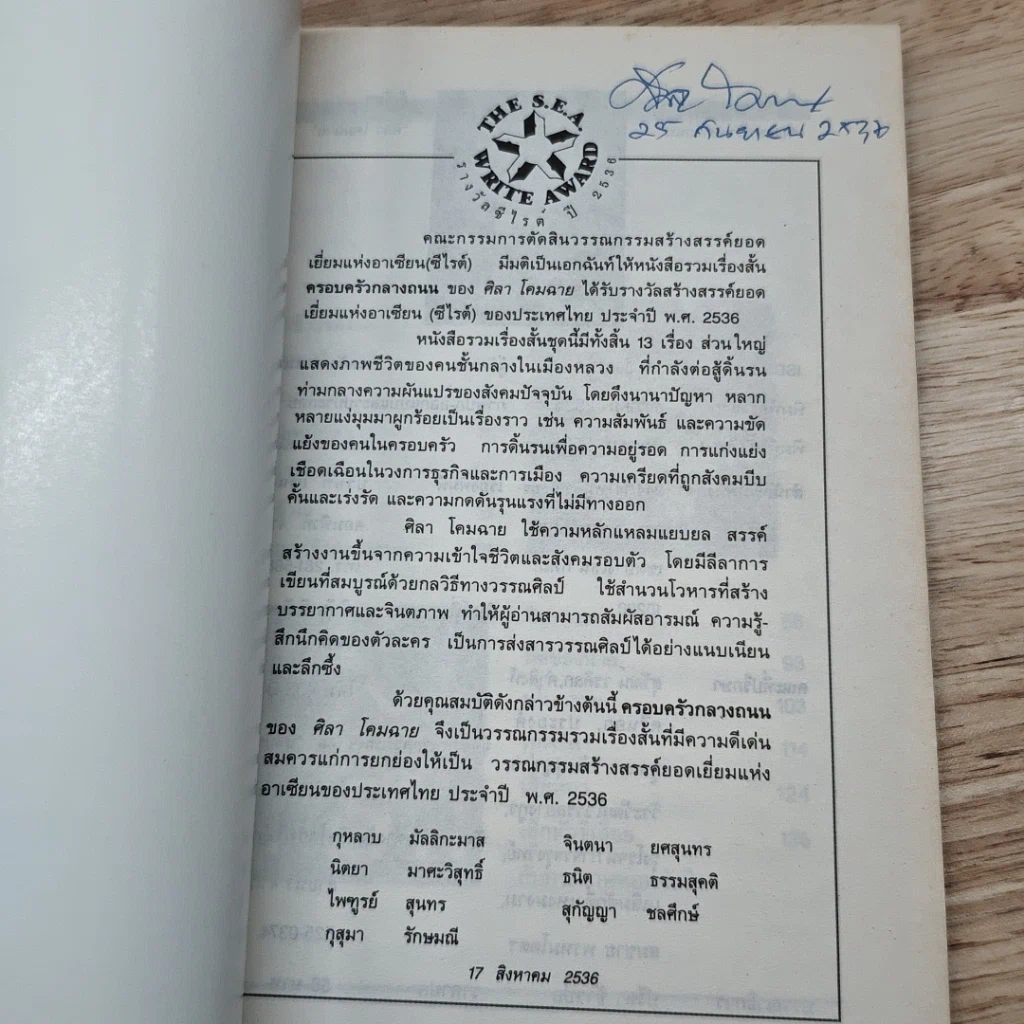 ศิลา โคมฉาย
25 กันยายน 2536
THE S.E.A. WRITE AWARD
รางวัลซีไรต์ ปี 2536
คณะกรรมการตัดสินวรรณกรรมสร้างสรรค์ยอด
เยี่ยมแห่งอาเซียน(ซีไรต์) มีมติเป็นเอกฉันท์ให้หนังสือรวมเรื่องสั้น
ครอบครัวกลางถนน ของ ศิลา โคมฉาย ได้รับรางวัลสร้างสรรค์ยอด
เยี่ยมแห่งอาเซียน (ซีไรต์) ของประเทศไทย ประจำปี พ.ศ. 2536
หนังสือรวมเรื่องสั้นชุดนี้มีทั้งสิ้น 13 เรื่อง ส่วนใหญ่
แสดงภาพชีวิตของคนชั้นกลางในเมืองหลวง ที่กำลังต่อสู้ดิ้นรน
ท่ามกลางความผันแปรของสังคมปัจจุบัน โดยดึงนานาปัญหา หลาก
หลายแง่มุมมาผูกร้อยเป็นเรื่องราว เช่น ความสัมพันธ์ และความขัด
แย้งของคนในครอบครัว การดิ้นรนเพื่อความอยู่รอด การแก่งแย่ง
เชือดเฉือนในวงการธุรกิจและการเมือง ความเครียดที่ถูกสังคมบีบ
คั้นและเร่งรัด และความกดดันรุนแรงที่ไม่มีทางออก
ศิลา โคมฉาย ใช้ความหลักแหลมแยบยล สรรค์
สร้างงานขึ้นจากความเข้าใจชีวิตและสังคมรอบตัว โดยมีลีลาการ
เขียนที่สมบูรณ์ด้วยกลวิธีทางวรรณศิลป์ ใช้สำนวนโวหารที่สร้าง
บรรยากาศและจินตภาพ ทำให้ผู้อ่านสามารถสัมผัสอารมณ์ ความรู้-
สึกนึกคิดของตัวละคร เป็นการส่งสารวรรณศิลป์ได้อย่างแนบเนียน
และลึกซึ้ง
ด้วยคุณสมบัติดังกล่าวข้างต้นนี้ ครอบครัวกลางถนน
ของ ศิลา โคมฉาย จึงเป็นวรรณกรรมรวมเรื่องสั้นที่มีความดีเด่น
สมควรแก่การยกย่องให้เป็น วรรณกรรมสร้างสรรค์ยอดเยี่ยมแห่ง
อาเซียนของประเทศไทย ประจำปี พ.ศ. 2536
กุหลาบ มัลลิกะมาส จินตนา ยศสุนทร
นิตยา มาศะวิสุทธิ์ ธนิต ธรรมสุคติ
ไพฑูรย์ สุนทร สุกัญญา ชลศึกษ์
กุสุมา รักษมณี
17 สิงหาคม 2536